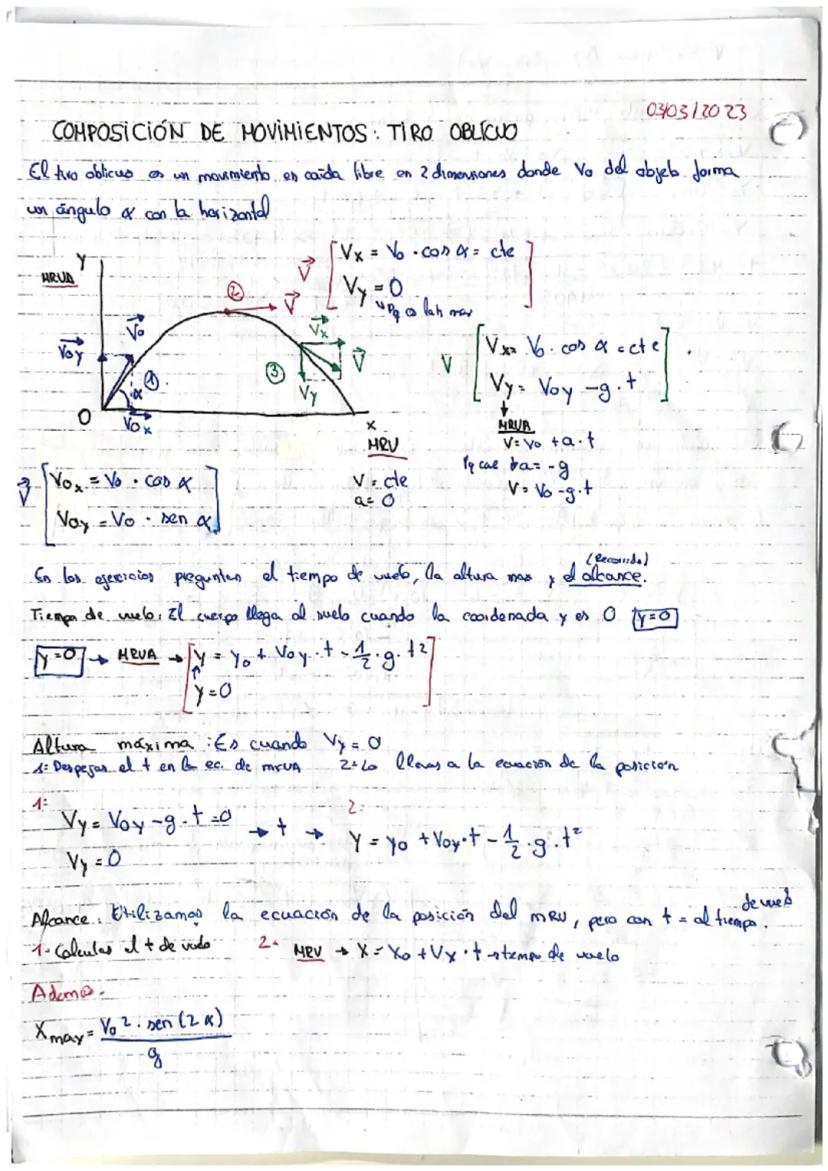 03/03/2023
COMPOSICIÓN DE MOVIMIENTOS: TIRO OBLICUO
El tiro oblicuo es un movimiento en caída libre en 2 dimensiones donde Vo del objeto forma
un ángulo α con la horizontal
Y
MRUA
V⃗oy
V⃗o
①
α
O
V⃗ox
②
V⃗
V⃗x
③
V⃗
Vy
x
MRU
V = cte
a = 0
V⃗ [Vx = Vo · cos α = cte
Vy = 0]
Pq es la h max
V [Vx = Vo · cos α = cte
Vy = Voy - g · t]
↓
MRUA
V = Vo + a · t
Pq cae a = -g
V = Vo - g · t
V⃗ [Vox = Vo · cos α
Voy = Vo · sen α]
En los ejercicios preguntan el tiempo de vuelo, la altura max y el alcance.
(Recorrido)
Tiempo de vuelo: El cuerpo llega al suelo cuando la coordenada y es 0 y=0
y=0 → MRUA → [y = yo + Voy · t - 1/2 · g · t²
↑
y=0]
Altura máxima: Es cuando Vy = 0
1: Despejas el t en la ec. de MRUA 2: Lo llevas a la ecuación de la posición
1: Vy = Voy - g · t = 0
Vy = 0
→ t →
2: Y = yo + Voy · t - 1/2 · g · t²
Alcance. Utilizamos la ecuación de la posición del MRU, pero con t = al tiempo de vuelo.
1- Calculas el t de vuelo 2- MRU → X = Xo + Vx · t → tiempo de vuelo
Ademas-
Xmax = Vo² · sen (2α) / g